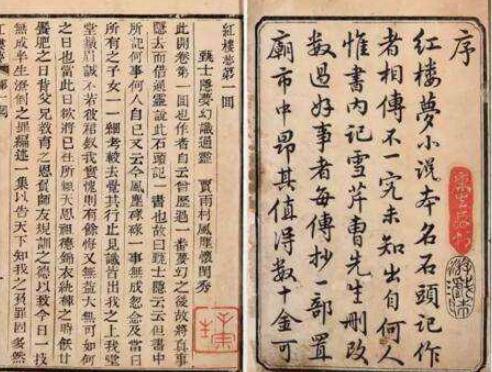 序
红樓夢小说本名石頭记作
者相傳不一究未知出自何人
惟書内记雪芹曹先生删改
数過好事者每傳抄一部置
廟市中昂其值得数十金可
紅樓夢第一囘
甄士隱夢幻識通靈 賈雨村風塵懷閨秀
此開卷第一囘也作者自云曾歷過一番夢幻之後故將眞事
隱去而借通靈說此石頭記一書也故曰甄士隱云云但書中
所記何事何人自己又云今風塵碌碌一事無成忽念及當日
所有之子女一一細考較去覺其行止見識皆出我之上我堂
堂鬚眉誠不若彼裙釵我實愧則有餘悔又無益大無可如何
之日也當此日欲將已往所賴天恩祖德錦衣紈袴之時飫甘
饜肥之日背父兄教育之恩負師友規訓之德以致今日一技
無成半生潦倒之罪編述一集以告天下知我之負罪固多然